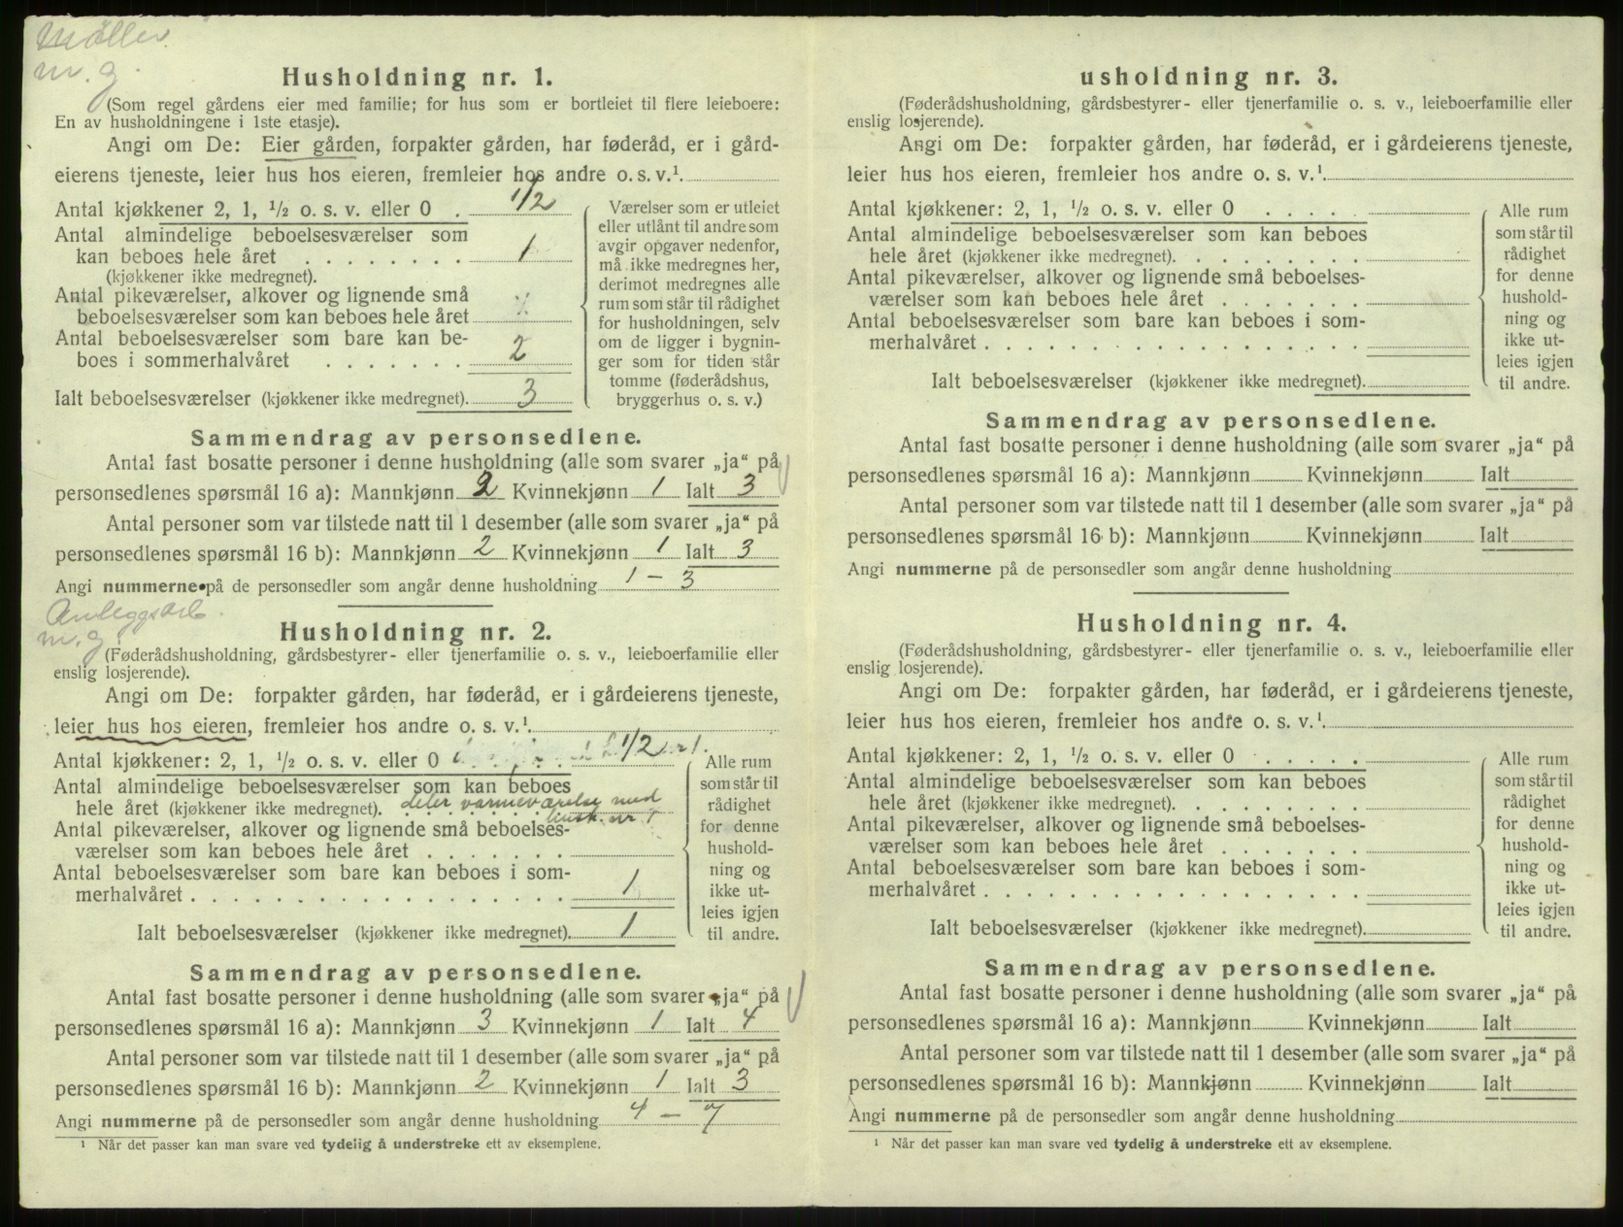 Møller
m. g.
Husholdning nr. 1.
(Som regel gårdens eier med familie; for hus som er bortleiet til flere leieboere:
En av husholdningene i 1ste etasje).
Angi om De: Eier gården, forpakter gården, har føderåd, er i gård-
eierens tjeneste, leier hus hos eieren, fremleier hos andre o. s. v.¹
Antal kjøkkener 2, 1, ½ o. s. v. eller 0 . 1/2
Antal almindelige beboelsesværelser som
kan beboes hele året . . . . . . . . 1
(kjøkkener ikke medregnet).
Antal pikeværelser, alkover og lignende små
beboelsesværelser som kan beboes hele året
Antal beboelsesværelser som bare kan be-
boes i sommerhalvåret . . . . . . . 2
Ialt beboelsesværelser (kjøkkener ikke medregnet). 3
Værelser som er utleiet
eller utlånt til andre som
avgir opgaver nedenfor,
må ikke medregnes her,
derimot medregnes alle
rum som står til rådighet
for husholdningen, selv
om de ligger i bygnin-
ger som for tiden står
tomme (føderådshus,
bryggerhus o. s. v.)
Sammendrag av personsedlene.
Antal fast bosatte personer i denne husholdning (alle som svarer „ja“ på
personsedlenes spørsmål 16 a): Mannkjønn 2 Kvinnekjønn 1 Ialt 3
Antal personer som var tilstede natt til 1 desember (alle som svarer „ja“ på
personsedlenes spørsmål 16 b): Mannkjønn 2 Kvinnekjønn 1 Ialt 3
Angi nummerne på de personsedler som angår denne husholdning 1 – 3
Anleggsarb.
m. g.
Husholdning nr. 2.
(Føderådshusholdning, gårdsbestyrer- eller tjenerfamilie o. s. v., leieboerfamilie eller
enslig losjerende).
Angi om De: forpakter gården, har føderåd, er i gårdeierens tjeneste,
leier hus hos eieren, fremleier hos andre o. s. v.¹
Antal kjøkkener: 2, 1, ½ o. s. v. eller 0 1/2
Antal almindelige beboelsesværelser som kan beboes
hele året (kjøkkener ikke medregnet). deler varmeværelse med
hush. nr 1
Antal pikeværelser, alkover og lignende små beboelses-
værelser som kan beboes hele året . . . . . . .
Antal beboelsesværelser som bare kan beboes i som-
merhalvåret . . . . . . . . . . . . . . . . . . 1
Ialt beboelsesværelser (kjøkkener ikke medregnet). 1
Alle rum
som står til
rådighet
for denne
hushold-
ning og
ikke ut-
leies igjen
til andre.
Sammendrag av personsedlene.
Antal fast bosatte personer i denne husholdning (alle som svarer „ja“ på
personsedlenes spørsmål 16 a): Mannkjønn 3 Kvinnekjønn 1 Ialt 4
Antal personer som var tilstede natt til 1 desember (alle som svarer „ja“ på
personsedlenes spørsmål 16 b): Mannkjønn 2 Kvinnekjønn 1 Ialt 3
Angi nummerne på de personsedler som angår denne husholdning 4 – 7
¹ Når det passer kan man svare ved tydelig å understreke ett av eksemplene.
usholdning nr. 3.
(Føderådshusholdning, gårdsbestyrer- eller tjenerfamilie o. s. v., leieboerfamilie eller
enslig losjerende).
Angi om De: forpakter gården, har føderåd, er i gårdeierens tjeneste,
leier hus hos eieren, fremleier hos andre o. s. v.¹
Antal kjøkkener: 2, 1, ½ o. s. v. eller 0 . . . . .
Antal almindelige beboelsesværelser som kan beboes
hele året (kjøkkener ikke medregnet). . . . . . . . .
Antal pikeværelser, alkover og lignende små beboelses-
værelser som kan beboes hele året . . . . . . .
Antal beboelsesværelser som bare kan beboes i som-
merhalvåret . . . . . . . . . . . . . . . . . .
Ialt beboelsesværelser (kjøkkener ikke medregnet).
Alle rum
som står til
rådighet
for denne
hushold-
ning og
ikke ut-
leies igjen
til andre.
Sammendrag av personsedlene.
Antal fast bosatte personer i denne husholdning (alle som svarer „ja“ på
personsedlenes spørsmål 16 a): Mannkjønn Kvinnekjønn Ialt
Antal personer som var tilstede natt til 1 desember (alle som svarer „ja“ på
personsedlenes spørsmål 16 b): Mannkjønn Kvinnekjønn Ialt
Angi nummerne på de personsedler som angår denne husholdning
Husholdning nr. 4.
(Føderådshusholdning, gårdsbestyrer- eller tjenerfamilie o. s. v., leieboerfamilie eller
enslig losjerende).
Angi om De: forpakter gården, har føderåd, er i gårdeierens tjeneste,
leier hus hos eieren, fremleier hos andre o. s. v.¹
Antal kjøkkener: 2, 1, ½ o. s. v. eller 0 . . . . .
Antal almindelige beboelsesværelser som kan beboes
hele året (kjøkkener ikke medregnet). . . . . . . . .
Antal pikeværelser, alkover og lignende små beboelses-
værelser som kan beboes hele året . . . . . . .
Antal beboelsesværelser som bare kan beboes i som-
merhalvåret . . . . . . . . . . . . . . . . . .
Ialt beboelsesværelser (kjøkkener ikke medregnet).
Alle rum
som står til
rådighet
for denne
hushold-
ning og
ikke ut-
leies igjen
til andre.
Sammendrag av personsedlene.
Antal fast bosatte personer i denne husholdning (alle som svarer „ja“ på
personsedlenes spørsmål 16 a): Mannkjønn Kvinnekjønn Ialt
Antal personer som var tilstede natt til 1 desember (alle som svarer „ja“ på
personsedlenes spørsmål 16 b): Mannkjønn Kvinnekjønn Ialt
Angi nummerne på de personsedler som angår denne husholdning
¹ Når det passer kan man svare ved tydelig å understreke ett av eksemplene.